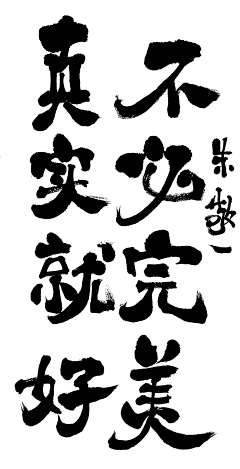 不必完美
真实就好
朱敬一